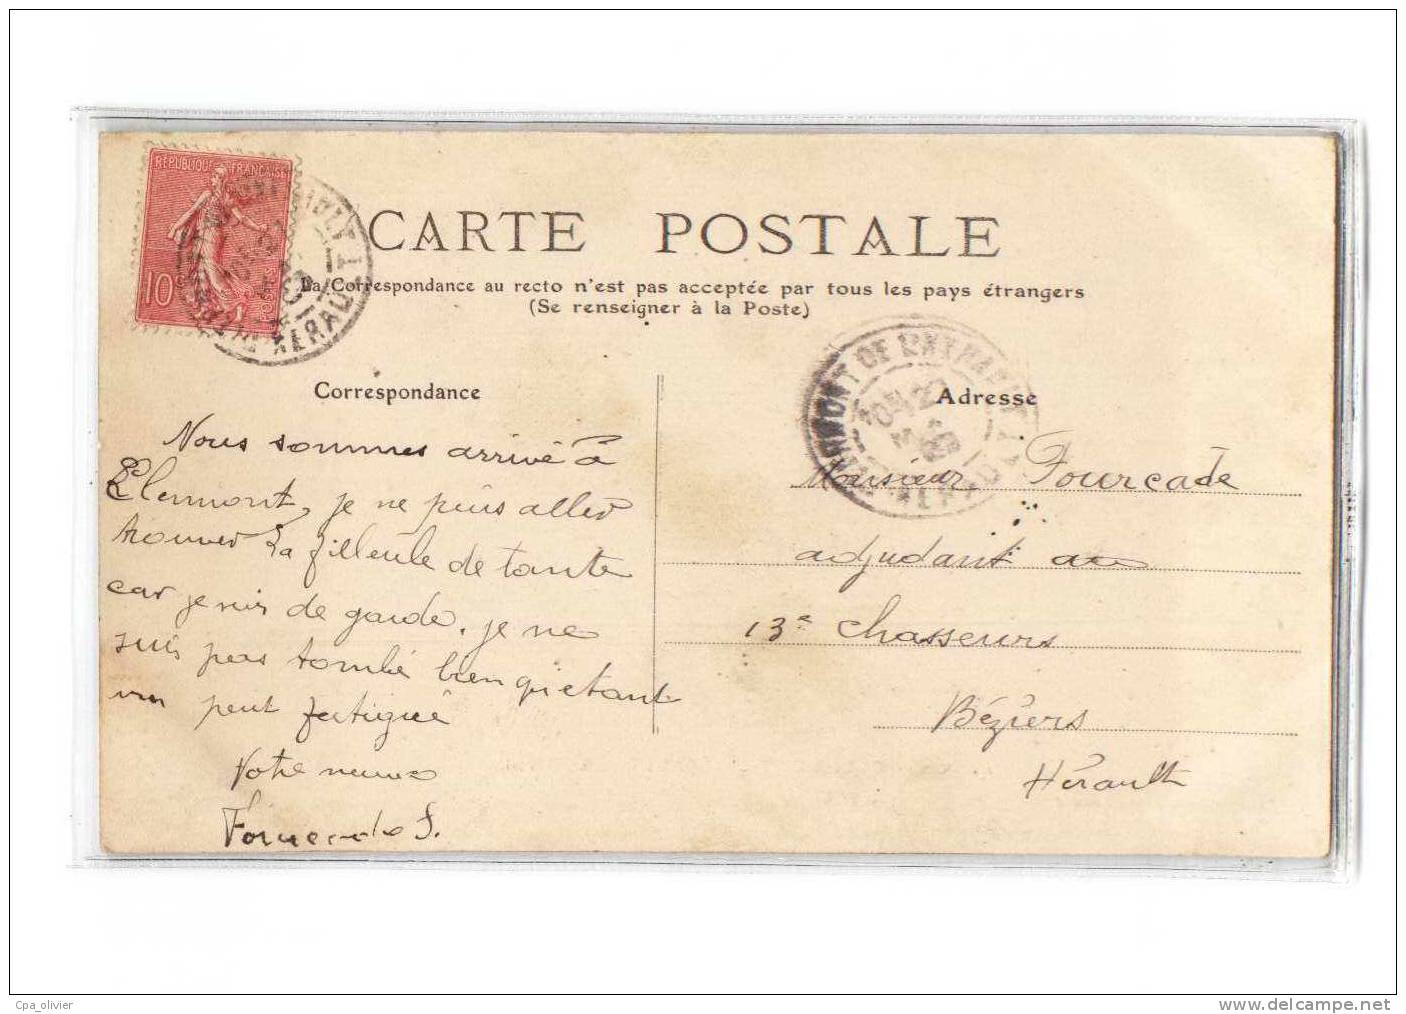 RÉPUBLIQUE FRANÇAISE
10c
CARTE POSTALE
La Correspondance au recto n'est pas acceptée par tous les pays étrangers
(Se renseigner à la Poste)
Correspondance
Adresse
CLERMONT DE L'HERAULT
HERAULT
HERAULT
Nous sommes arrivé à
Clermont, je ne puis aller
trouver la filleule de tante
car je suis de garde, je ne
suis pas tombé bien qu'etant
un peut fatigué
Votre neveu
Fourcade J.
Monsieur Fourcade
adjudant au
13e Chasseurs
Béziers
Hérault
Cpa_olivier
www.delcampe.net